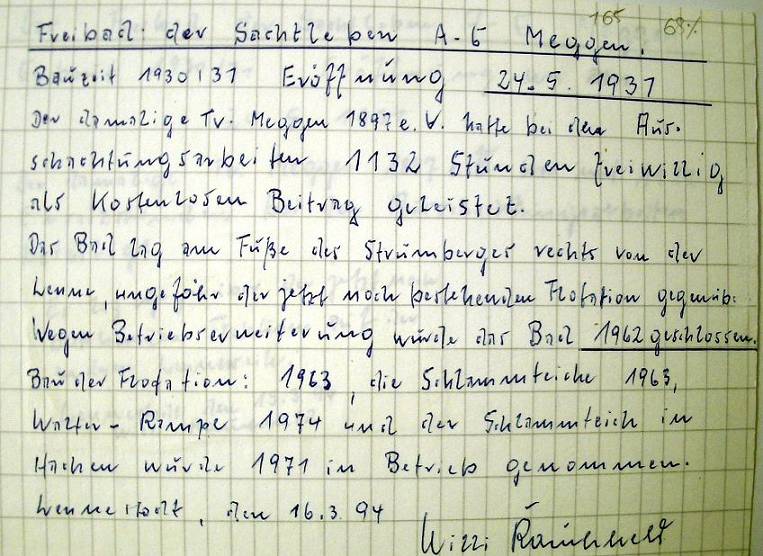 165 68%
Freibad der Sachtleben A-G Meggen.
Bauzeit 1930/31 Eröffnung 24.5.1931
Der damalige Tv. Meggen 1897 e.V. hatte bei den Aus-
schachtungsarbeiten 1132 Stunden freiwillig
als Kostenlosen Beitrag geleistet.
Das Bad lag am Fuße des Strumberges rechts von der
Lenne, ungefähr der jetzt noch bestehenden Flotation gegenüb.
Wegen Betriebserweiterung wurde das Bad 1962 geschlossen.
Bau der Flotation: 1963, die Schlammteiche 1963,
Walter-Rampe 1974 und der Schlammteich in
Hachen wurde 1971 in Betrieb genommen.
Lennestadt, den 16.3.94
Willi